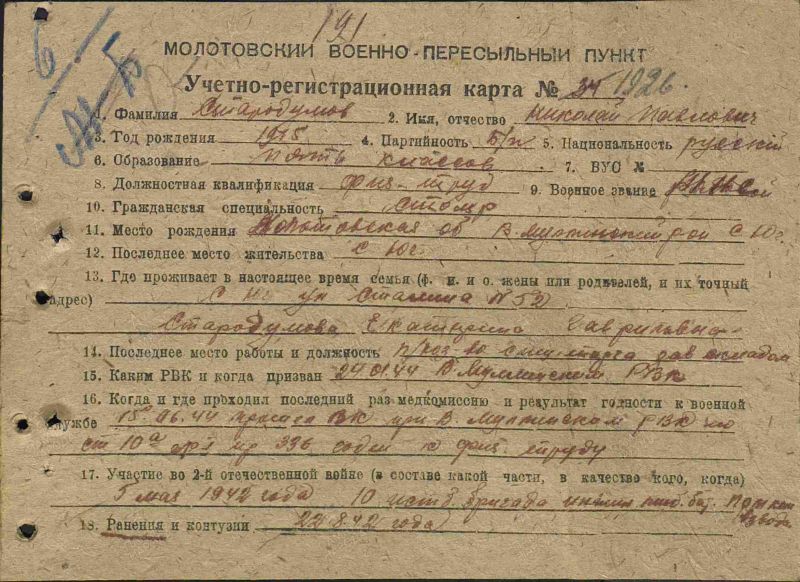 191
6
МОЛОТОВСКИЙ ВОЕННО-ПЕРЕСЫЛЬНЫЙ ПУНКТ
Учетно-регистрационная карта № 1926
1. Фамилия Стародумов 2. Имя, отчество Николай Павлович
3. Год рождения 1915 4. Партийность Б/п 5. Национальность русский
6. Образование пять классов 7. ВУС №
8. Должностная квалификация физ-труд 9. Военное звание
10. Гражданская специальность столяр
11. Место рождения Молотовская об В Муллинский рон С Юг
12. Последнее место жительства С Юг
13. Где проживает в настоящее время семья (ф. и. и о. жены или родителей, и их точный
адрес) С Юг ул Сталина № 52
Стародумова Екатерина Гавриловна
14. Последнее место работы и должность зав складом
15. Каким РВК и когда призван 24.01.44 В Муллинским РВК
16. Когда и где проходил последний раз медкомиссию и результат годности к военной
службе 15.06.44 ВК при В Муллинском РВК по
ст 10а пр 336 годен к физ труду
17. Участие во 2-й отечественной войне (в составе какой части, в качестве кого, когда)
5 мая 1942 года 10 истб бригада бат. Пом ком
взвода
18. Ранения и контузии 22 8.42 года